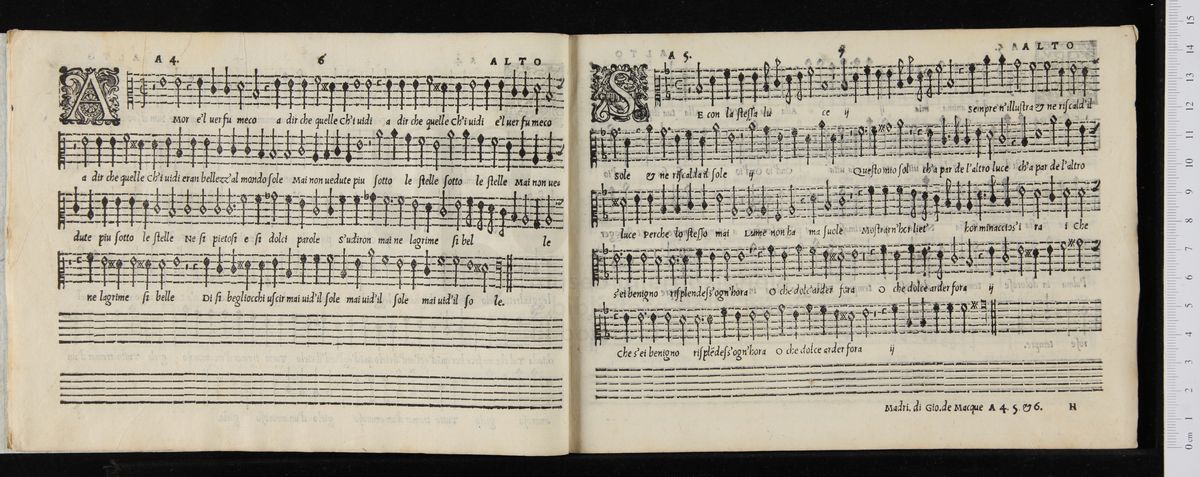 A 4. 6 ALTO
AMor e'l uer fu meco a dir che quelle Ch'i uidi a dir che quelle Ch'i uidi e'l uer fu meco
a dir che quelle Ch'i uidi eran bellezz'al mondo sole Mai non uedute piu sotto le stelle sotto le stelle Mai non ue=
dute piu sotto le stelle Ne si pietosi e si dolci parole S'udiron mai ne lagrime si bel le
ne lagrime si belle Di si begliocchi uscir mai uid'il sole mai uid'il sole mai uid'il so le.
A 5. ALTO
SE con la stessa lu ce ij sempre n'illustra & ne riscald'il
sole & ne riscalda il sole ij Questo mio sol ch'a par de l'altro luce ch'a par de l'altro
luce Perche lo stesso mai Lume non ha ma suole Mostrarn'hor liet' hor minaccios'i ra i Che
s'ei benigno risplendess'ogn'hora O che dolc'arder fora O che dolce arder fora ij
Che s'ei benigno risplēdess'ogn'hora O che dolce arder fora ij
Madri. di Gio. de Macque A 4. 5. & 6. H
0 cm 1 2 3 4 5 6 7 8 9 10 11 12 13 14 15